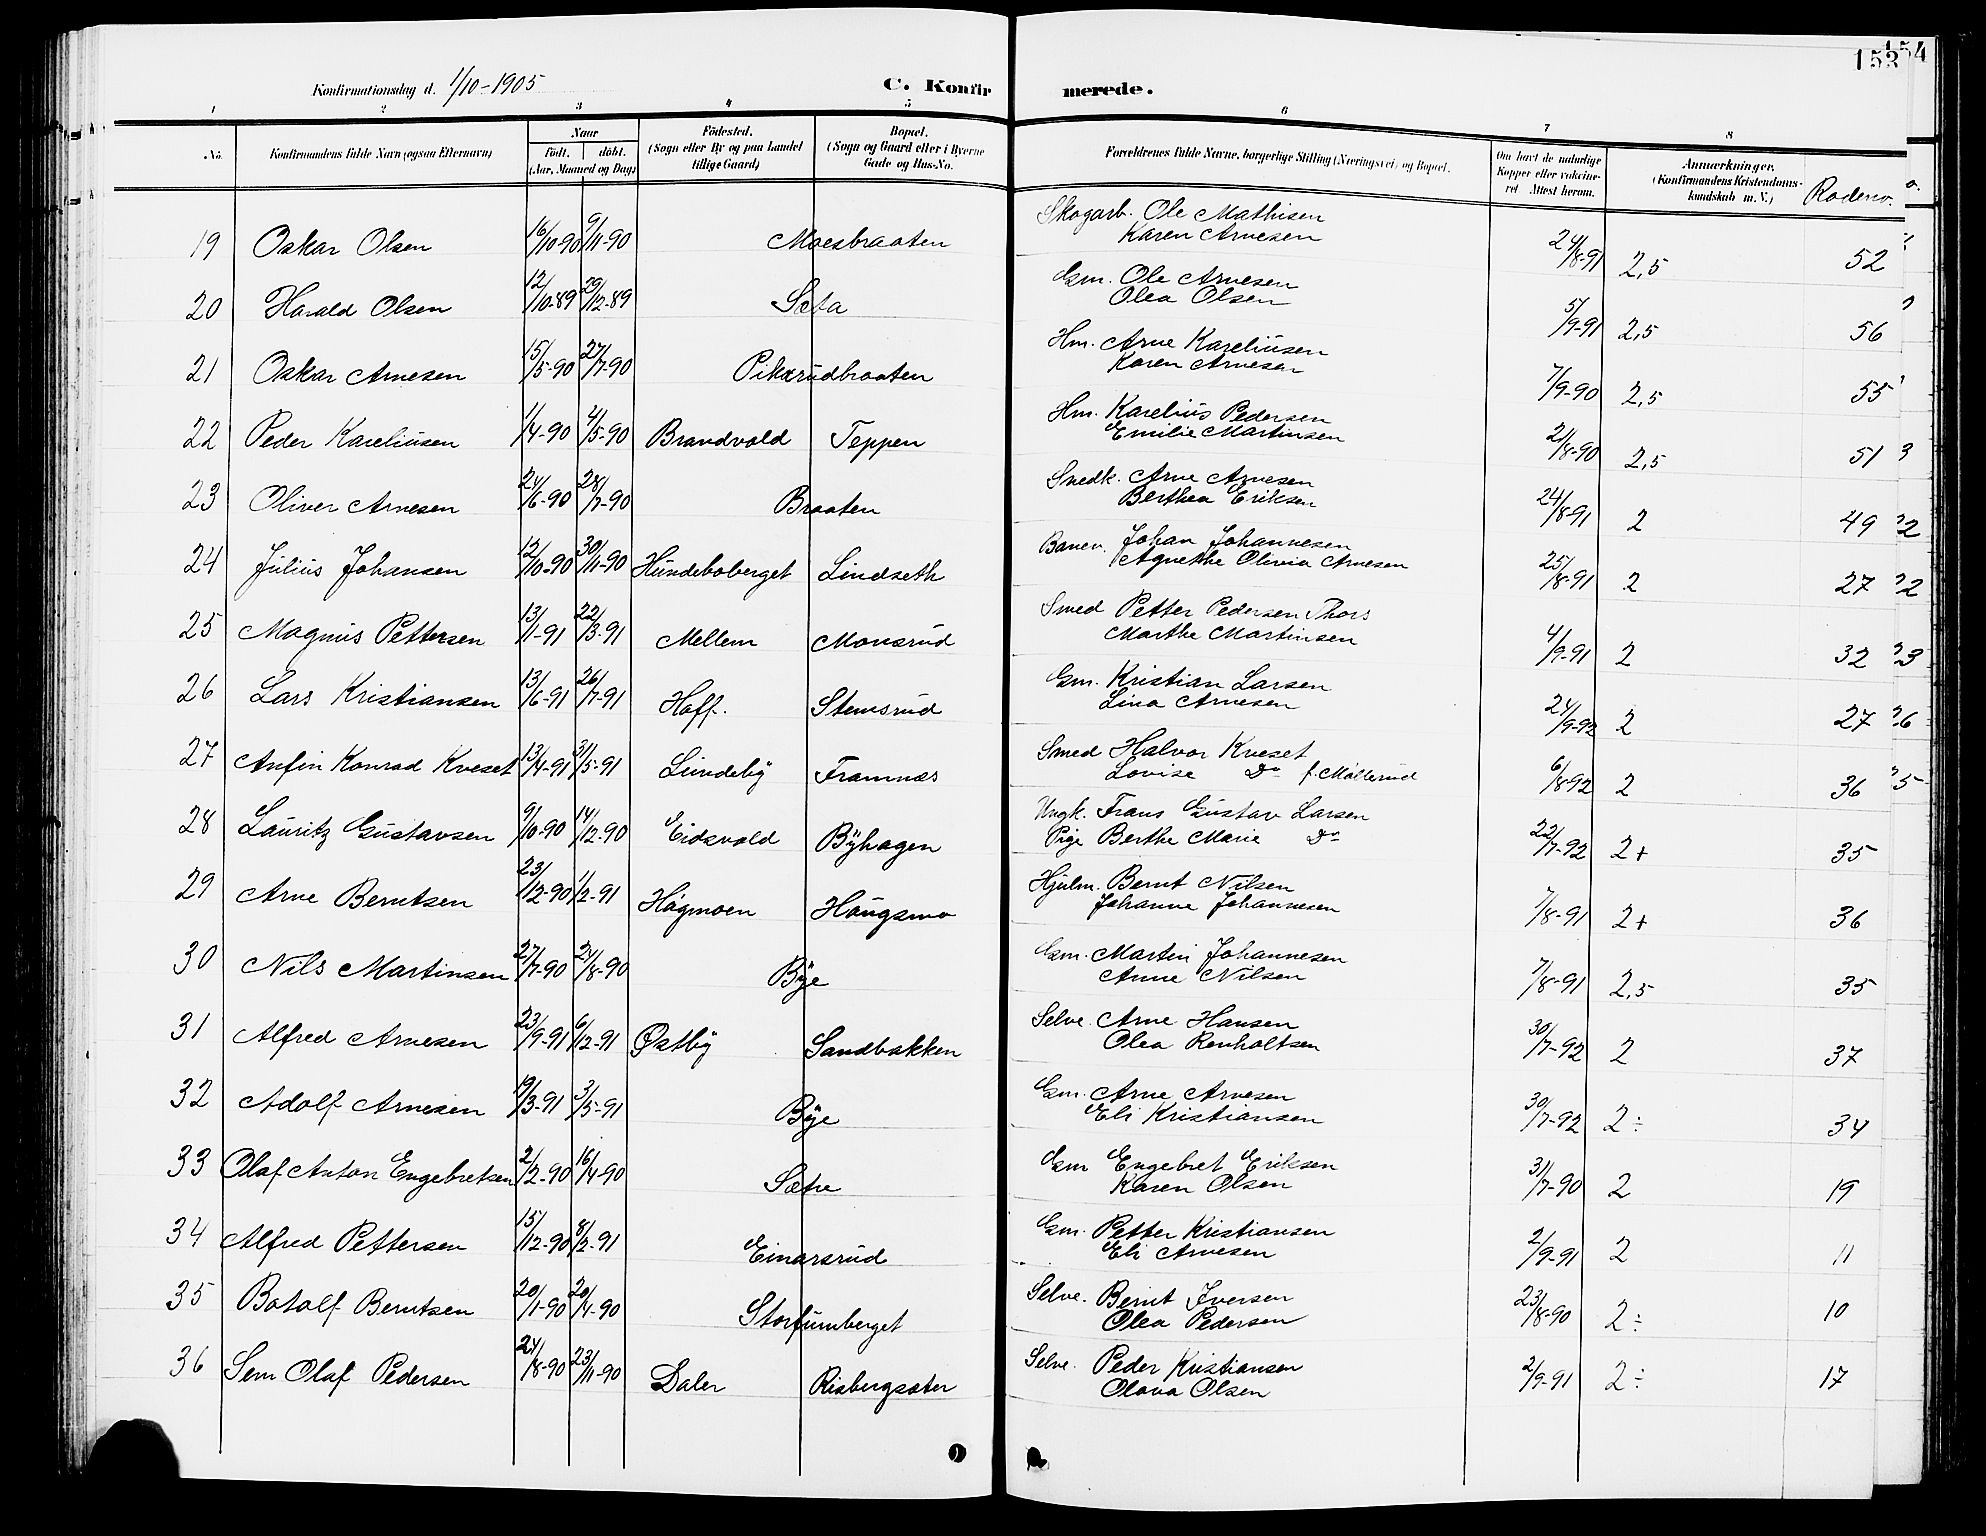 153
154
Konfirmationsdag d. 1/10-1905
C. Konfirmerede.
1 2 3 4 5 6 7 8
No. Konfirmandens fulde Navn (ogsaa Efternavn) Naar født. døbt. (Aar, Maaned og Dag) Fødested. (Sogn eller By og paa Landet tillige Gaard) Bopæl. (Sogn og Gaard eller i Byerne Gade og Hus-No. Forældrenes fulde Navne, borgerlige Stilling (Næringsvei) og Bopæl. Om havt de naturlige Kopper eller vakcineret. Attest herom. Anmærkninger. (Konfirmandens Kristendomskundskab m. V.) Rodeno.
19 Oskar Olsen 16/10-90 9/11-90 Moesbraaten Skogarb. Ole Mathisen
Karen Arnesen 24/8-91 2,5 52
20 Harald Olsen 12/10-89 29/12-89 Sæta Gm. Ole Arnesen
Olea Olsen 5/9-91 2,5 56
21 Oskar Arnesen 15/5-90 27/7-90 Pikerudbraaten Hm. Arne Kareliusen
Karen Arnesen 7/9-90 2,5 55
22 Peder Kareliusen 1/4-90 4/5-90 Brandvold Teppen Hm. Karelius Pedersen
Emilie Martinsen 21/8-90 2,5 51
23 Oliver Arnesen 24/6-90 28/7-90 Braaten Snedk. Arne Arnesen
Berthea Eriksen 24/8-91 2 49
24 Julius Johansen 12/10-90 30/11-90 Hundeboberget Lindseth Banev. Johan Johannesen
Agnethe Olivia Arnesen 25/8-91 2 27
25 Magnus Pettersen 13/11-91 22/3-91 Mellem Monsrud Smed Petter Pedersen Thors
Marthe Martinsen 4/9-91 2 32
26 Lars Kristiansen 13/6-91 26/7-91 Hoff. Stemsrud Gm. Kristian Larsen
Lina Arnesen 24/9-92 2 27
27 Anfin Konrad Kveset 13/4-91 31/5-91 Lundeby Framnæs Smed Halvor Kveset
Lovise Do f. Møllerud 6/8-92 2 36
28 Lauritz Gustavsen 9/10-90 14/12-90 Eidsvold Byhagen Ungk. Frans Gustav Larsen
Pige Berthe Marie Do 22/7-92 2+ 35
29 Arne Berntsen 23/12-90 1/2-91 Hagmoen Haugsmo Hjulm. Bernt Nilsen
Johanne Johannesen 7/8-91 2+ 36
30 Nils Martinsen 27/7-90 24/8-90 Bye Gm. Martin Johannesen
Anne Nilsen 7/8-91 2,5 35
31 Alfred Arnesen 23/9-91 6/12-91 Østby Sandbakken Selve. Arne Hansen
Olea Renholtsen 30/7-92 2 37
32 Adolf Arnesen 19/3-91 3/5-91 Bye Gm. Arne Arnesen
Eli Kristiansen 30/7-92 2÷ 34
33 Olaf Anton Engebretsen 2/2-90 16/4-90 Sætre Gm Engebret Eriksen
Karen Olsen 31/7-90 2 19
34 Alfred Pettersen 15/12-90 8/2-91 Einarsrud Gm. Petter Kristiansen
Eli Arnesen 2/9-91 2 11
35 Botolf Berntsen 20/1-90 20/4-90 Storfuruberget Selve. Bernt Iversen
Olea Pedersen 23/8-90 2÷ 10
36 Sem Olaf Pedersen 24/8-90 23/11-90 Daler Risbergsæter Selve. Peder Kristiansen
Olava Olsen 2/9-91 2÷ 17